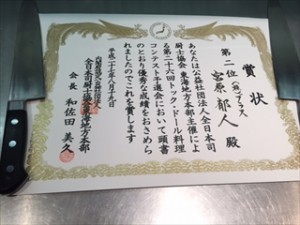 賞状
第二位
宮原郁人殿
あなたは公益社団法人全日本司
厨士協会東海地方本部主催によ
る第二十六回トック・ドール料理
コンテスト予選会において頭書
のとおり優秀な成績をおさめら
れましたのでこれを賞します
平成二十五年八月十九日
全日本司厨士協会東海地方本部
会長 和佐田美久